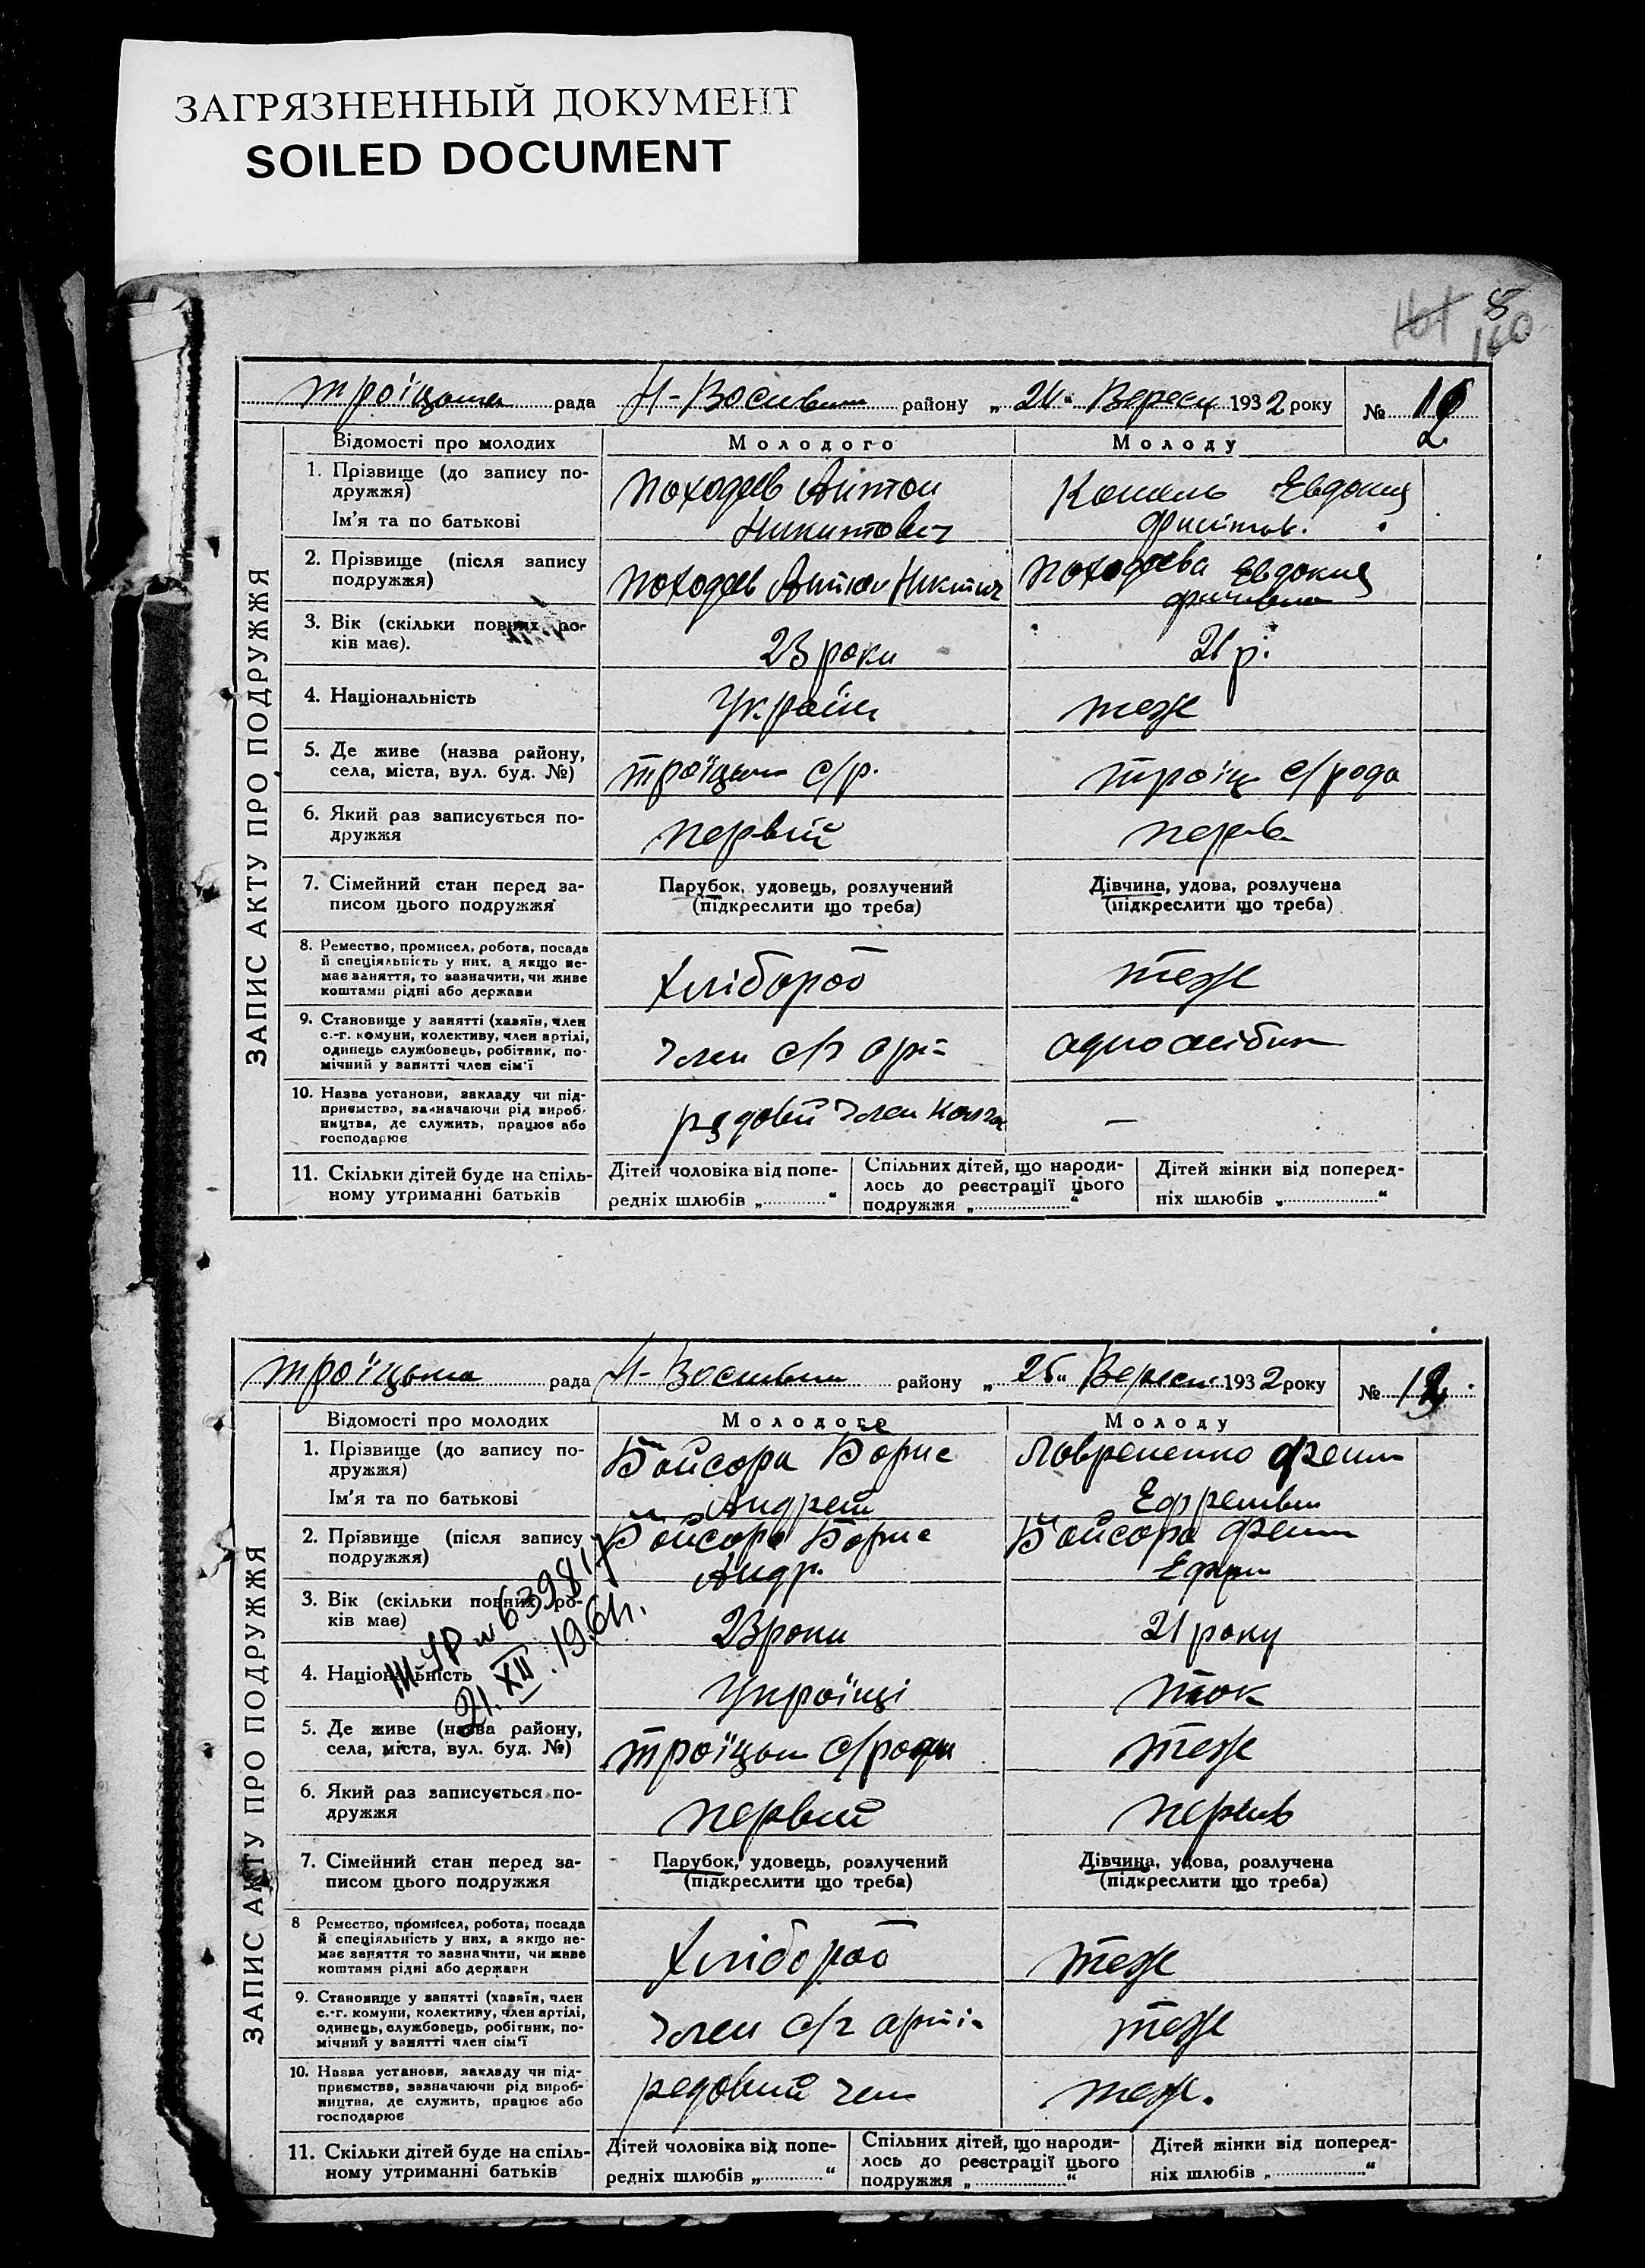 ЗАГРЯЗНЕННЫЙ ДОКУМЕНТ
SOILED DOCUMENT
8
160
ЗАПИС АКТУ ПРО ПОДРУЖЖЯ
рада Н- району „ “ 1932 року №
Відомості про молодих Молодого Молоду
1. Прізвище (до запису по-
дружжя)
Ім'я та по батькові
Походєєв Антон
Никитович
Евдокия
2. Прізвище (після запису
подружжя)
Походєєв Антон
Походєєва Евдокия
3. Вік (скільки повних ро-
ків має).
23 роки
21 р.
4. Національність
теж
5. Де живе (назва району,
села, міста, вул. буд. №)
с/р.
с/рада
6. Який раз записується по-
дружжя
первій
7. Сімейний стан перед за-
писом цього подружжя
Парубок, удовець, розлучений
(підкреслити що треба)
Дівчина, удова, розлучена
(підкреслити що треба)
8. Ремество, промисел, робота, посада
й спеціяльність у них, а якщо не-
має заняття, то зазначити, чи живе
коштами рідні або держави
хлібороб
теж
9. Становище у занятті (хазяїн, член
с.-г. комуни, колективу, член артілі,
одинець службовець, робітник, по-
мічний у занятті член сім'ї
член с/г
10. Назва установи, закладу чи під-
приємства, зазначаючи рід вироб-
ництва, де служить, працює або
господарює
рядовий член
—
11. Скільки дітей буде на спіль-
ному утриманні батьків
Дітей чоловіка від попе-
редніх шлюбів „ “
Спільних дітей, що народи-
лось до реєстрації цього
подружжя „ “
Дітей жінки від поперед-
ніх шлюбів „ “
ЗАПИС АКТУ ПРО ПОДРУЖЖЯ
рада Н- району „ “ 1932 року №
Відомості про молодих Молодого Молоду
1. Прізвище (до запису по-
дружжя)
Ім'я та по батькові
Байсора Борис
Андрей
2. Прізвище (після запису
подружжя)
Байсора Борис
Андр.
Байсора
3. Вік (скільки повних ро-
ків має)
23 роки
21 року
4. Національність
Українці
21. XII. 1961г.
5. Де живе (назва району,
села, міста, вул. буд. №)
теж
6. Який раз записується по-
дружжя
первий
7. Сімейний стан перед за-
писом цього подружжя
Парубок, удовець, розлучений
(підкреслити що треба)
Дівчина, удова, розлучена
(підкреслити що треба)
8 Ремество, промисел, робота, посада
й спеціяльність у них, а якщо не-
має заняття то зазначити, чи живе
коштами рідні або держави
хлібороб
теж
9. Становище у занятті (хазяїн, член
с.-г. комуни, колективу, член артілі,
одинець, службовець, робітник, по-
мічний у занятті член сім'ї
член с/г
теж
10. Назва установи, закладу чи під-
приємства, зазначаючи рід вироб-
ництва, де служить, працює або
господарює
редовий
теж.
11. Скільки дітей буде на спіль-
ному утриманні батьків
Дітей чоловіка від попе-
редніх шлюбів „ “
Спільних дітей, що народи-
лось до реєстрації цього
подружжя „ “
Дітей жінки від поперед-
ніх шлюбів „ “